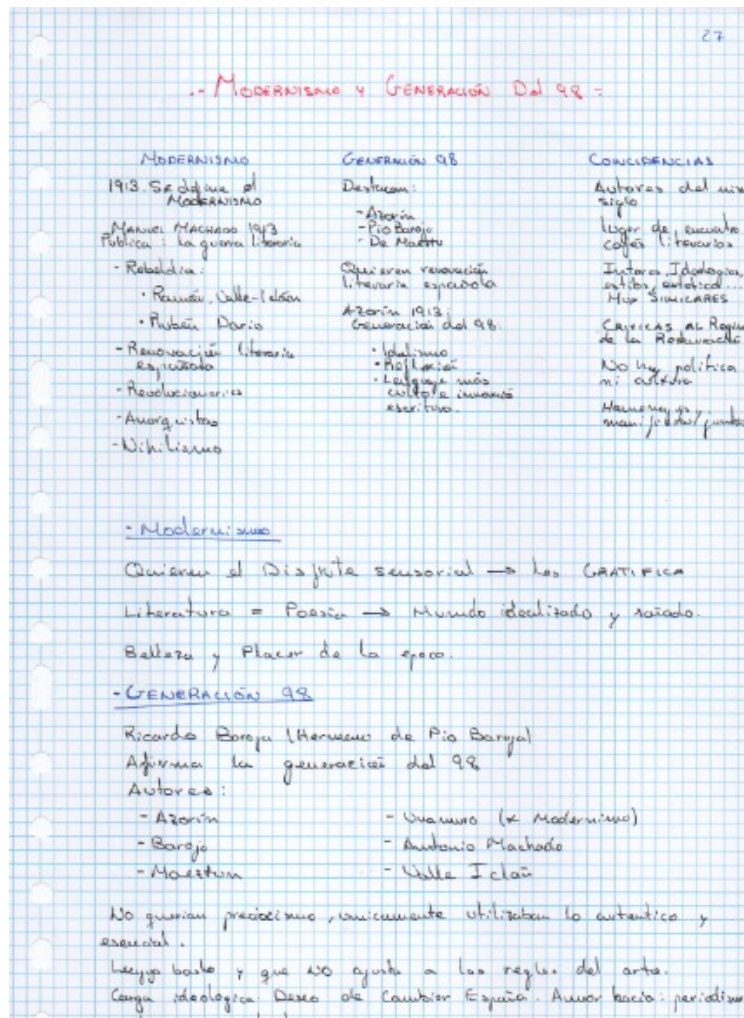 27
.- MODERNISMO Y GENERACIÓN Del 98 -
MODERNISMO
1913. Se define el
MODERNISMO
MANUEL MACHADO 1913
Publica: La guerra literaria
- Rebeldia:
• Ramón, Valle-Iclán
• Rubén Dario
- Renovación literaria
española
- Revolucionarios
- Anarquistas
- Nihilismo
GENERACIÓN 98
Destacan:
- Azorín
- Pio Baroja
- De Maeztu
Quieren renovación
literaria española
Azorin 1913:
Generación del 98:
• Idealismo
• Reflexión
• Lenguaje más
culto e
escritura.
COINCIDENCIAS
Autores del
siglo
Lugar de encuentro
cafés literarios
Ideologia,
estilos, estética...
MUY SIMILARES
CRITICAS AL
de la
No hay politica
ni cultura
- Modernismo
Quieren el Disfrute sensorial → Les GRATIFICA
Literatura = Poesia → Mundo idealizado y soñado.
Belleza y Placer de la epoca.
- GENERACIÓN 98
Ricardo Baroja (Hermano de Pio Baroja)
Afirma la generación del 98
Autores:
- Azorín
- Baroja
- Maeztu
- Unamuno (x Modernismo)
- Antonio Machado
- Valle Iclán
No querian preciosismo, unicamente utilizaban lo autentico y
esencial.
basto y que no ajusta a las reglas del arte.
Carga ideologica. Deseo de Cambiar España. Amor hacia: